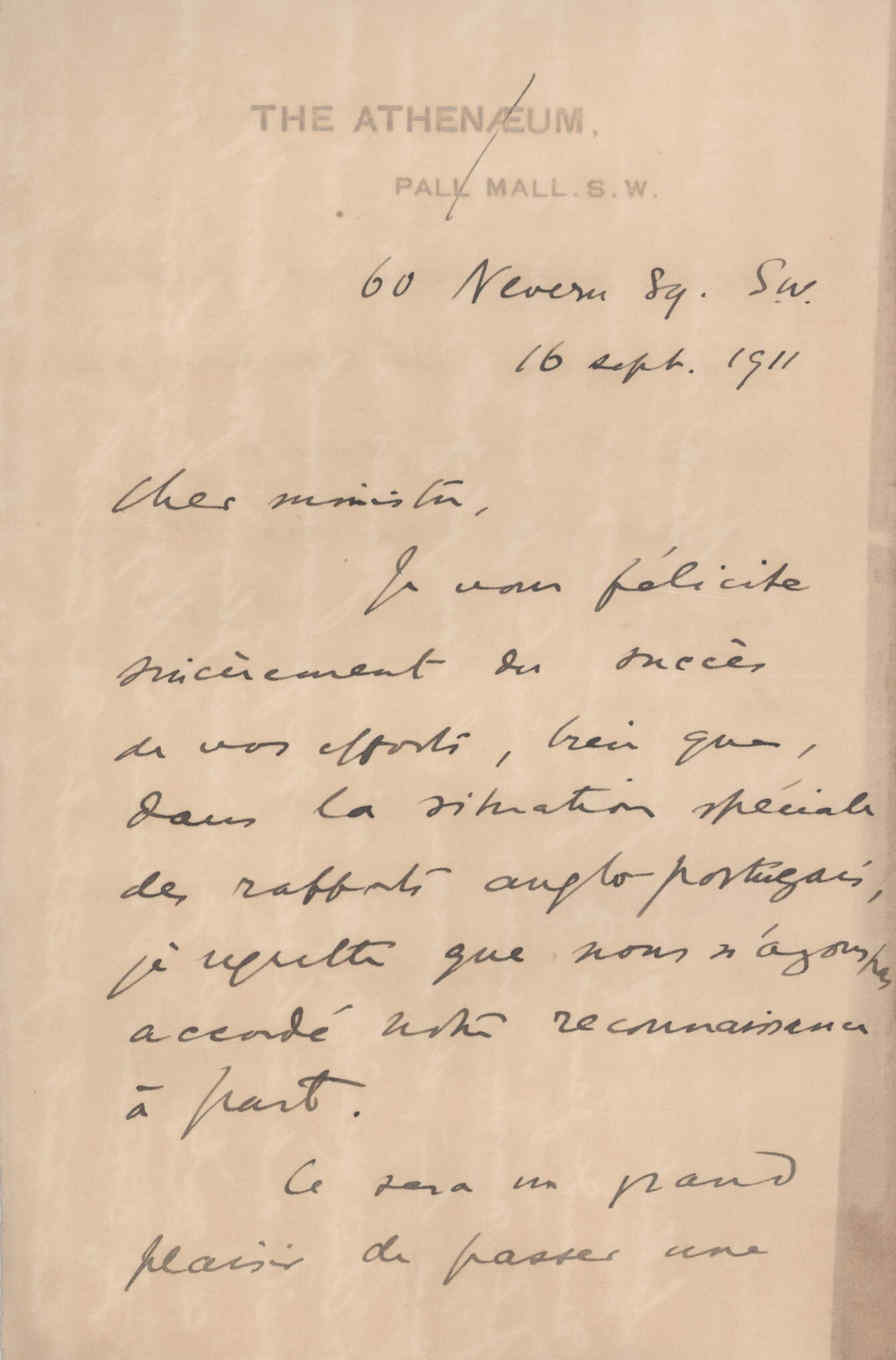 THE ATHENÆUM,
PALL MALL. S. W.
60 Nevern Sq. S.W.
16 sept. 1911
Cher ministre,
Je vous félicite
sincèrement du succès
de vos efforts, bien que,
dans la situation spéciale
des rapports anglo-portugais,
je regrette que nous n'ayons pas
accordé notre reconnaissance
à part.
Ce sera un grand
plaisir de passer une